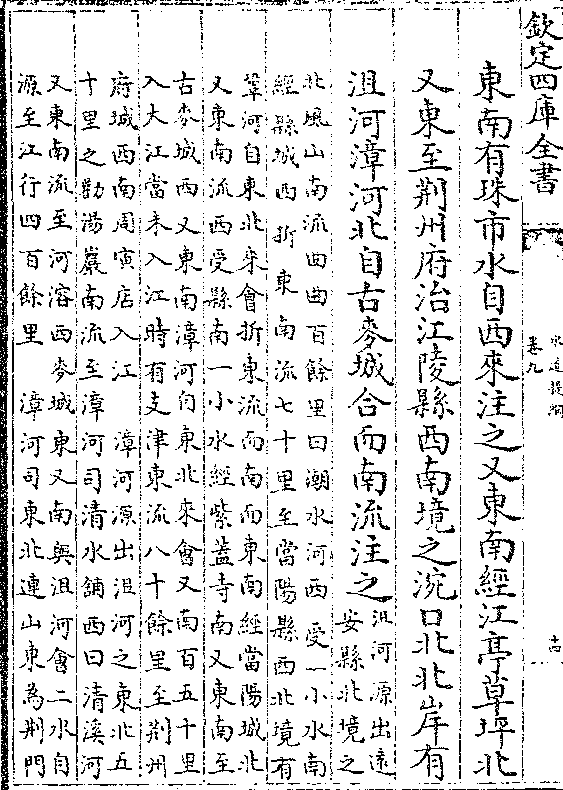 欽定四庫全書
水道提綱
卷九
十四
東南有珠市水自西來注之又東南經江亭草坪北
又東至荆州府治江陵縣西南境之涴口北北岸有
沮河漳河北自古麥城合而南流注之
沮河源出遠
安縣北境之
北風山南流曲曲百餘里曰潮水河西受一小水南
經縣城西折東南流七十里至當陽縣西北境有
鞏河自東北來會折東流而南而東南經當陽城北
又東南流西受縣南一小水經紫蓋寺南又東南至
古麥城西又東南漳河自東北來會又南百五十里
入大江當未入江時有支津東流八十餘里至荆州
府城西南周寅店入江　漳河源出沮河之東北五
十里之勸湯巖南流至漳河司清水舖西曰清溪河
又東南流至河溶西麥城東又南與沮河會二水自
源至江行四百餘里　漳河司東北連山東為荆門